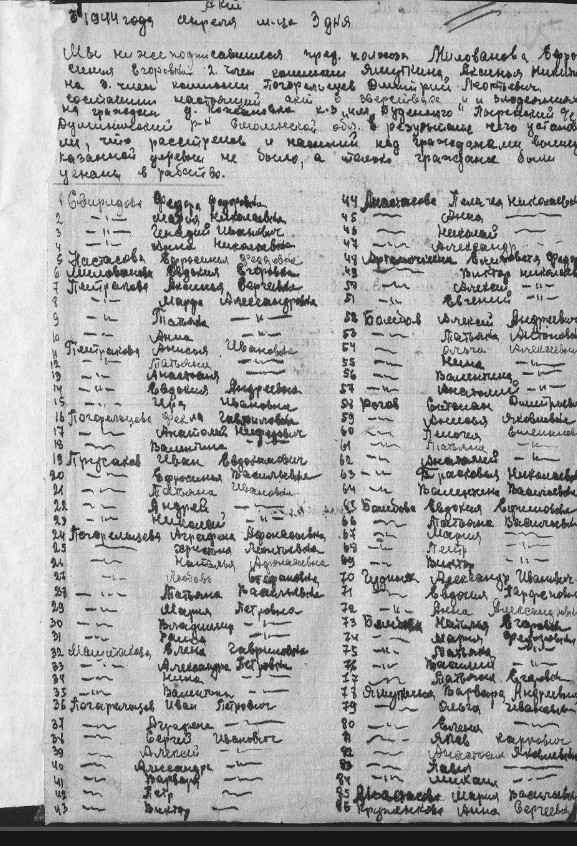 Акт
1944 года апреля м-ца 3 дня
Мы нижеподписавшиеся пред. колхоза Милованова Ефро-
синья Егоровна 2. член комиссии Яшуткина Аксинья Никити
на 3. член комиссии Погорельцев Дмитрий Леонтьевич
составили настоящий акт о зверствах и злодеяниях
на граждан д. к-з "им. Буденного"
Думиничский р-н Смоленской обл. в результате чего установи
ли, что расстрелов и насилий над гражданами
казанной деревни не было, а только граждане были
угнаны в рабство.
1 Свиридова Федора Федоровна
2 -"- Мария Николаевна
3 -"- Генадий Иванович
4 -"- Николаевна
5 Настасова Ефросинья Федоровна
6 Милованова Евдокия Егоровна
7 Питракова Аксинья Сергеевна
8 -"- Марфа Александровна
9 -"- Татьяна -"-
10 -"- Анна -"-
11 Питракова Анисья Ивановна
12 -"- Татьяна
13 -"- Анастасия -"-
14 -"- Евдокия Андреевна
15 -"- Ивановна
16 Погорельцева Фекла Гавриловна
17 -"- Анатолий Нефедович
18 -"- Валентина -"-
19 Прусаков Иван Евдокимович
20 -"- Ефросинья Васильевна
21 -"- Татьяна Ивановна
22 -"- Андрей -"-
23 -"- Николай -"-
24 Погорельцева Аграфена Афонасьевна
25 -"- Христина Леонтьевна
26 -"- Наталья Афонасьевна
27 -"- Любовь Стефановна
28 -"- Татьяна Васильевна
29 -"- Мария Петровна
30 -"- Владимир -"-
31 -"- Раиса -"-
32 Елена Гавриловна
33 -"- Александра Петровна
34 -"- Нина -"-
35 -"- Валентина -"-
36 Погорельцев Иван Петрович
37 -"- Аграфена
38 -"- Сергей Иванович
39 -"- Алексей -"-
40 -"- Александра -"-
41 -"- Варвара -"-
42 -"- Петр -"-
43 -"- Виктор -"-
44 Анастасова Пелагея Николаевна
45 -"- Анна -"-
46 -"- Николай -"-
47 -"- Александр -"-
48 Елизавета Федор
49 -"- Виктор Николаев
50 -"- Алексей -"-
51 -"- Евгений -"-
52 Бамбов Алексей Андреевич
53 -"- Татьяна Антоновна
54 -"- Ольга Алексеевна
55 -"- Нина -"-
56 -"- Валентина -"-
57 -"- Анатолий -"-
58 Рогов Степан Дмитриев
59 -"- Анисья Яковлевна
60 -"-
61 -"- Татьяна -"-
62 -"- Анатолий -"-
63 -"- Прасковья Николаевна
64 -"- Валентина Васильевна
65 Бамбова Евдокия
66 -"- Татьяна Васильевна
67 -"- Мария -"-
68 -"- Петр -"-
69 -"- Виктор -"-
70 Гудина Александр Иванович
71 -"- Евдокия
72 -"- Анна Александровна
73 Наталья Егоровна
74 -"- Мария Федоровна
75 -"- Татьяна -"-
76 -"- Василий -"-
77 -"- Татьяна Егоровна
78 Яшуткина Варвара Андреевна
79 -"- Ольга Ивановна
80 -"- Евгения -"-
81 -"- Яков Карпович
82 -"- Анастасия Яковлевна
83 -"- Павел -"-
84 -"- Михаил -"-
85 Анастасова Мария Васильевна
86 Анна Сергеевна